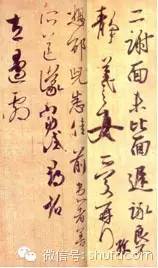 二謝面未比面遲詠良不
静羲之女愛再拜
想邰兒悉佳前患者善
所送議當試尋省
左邊劇
微信号: